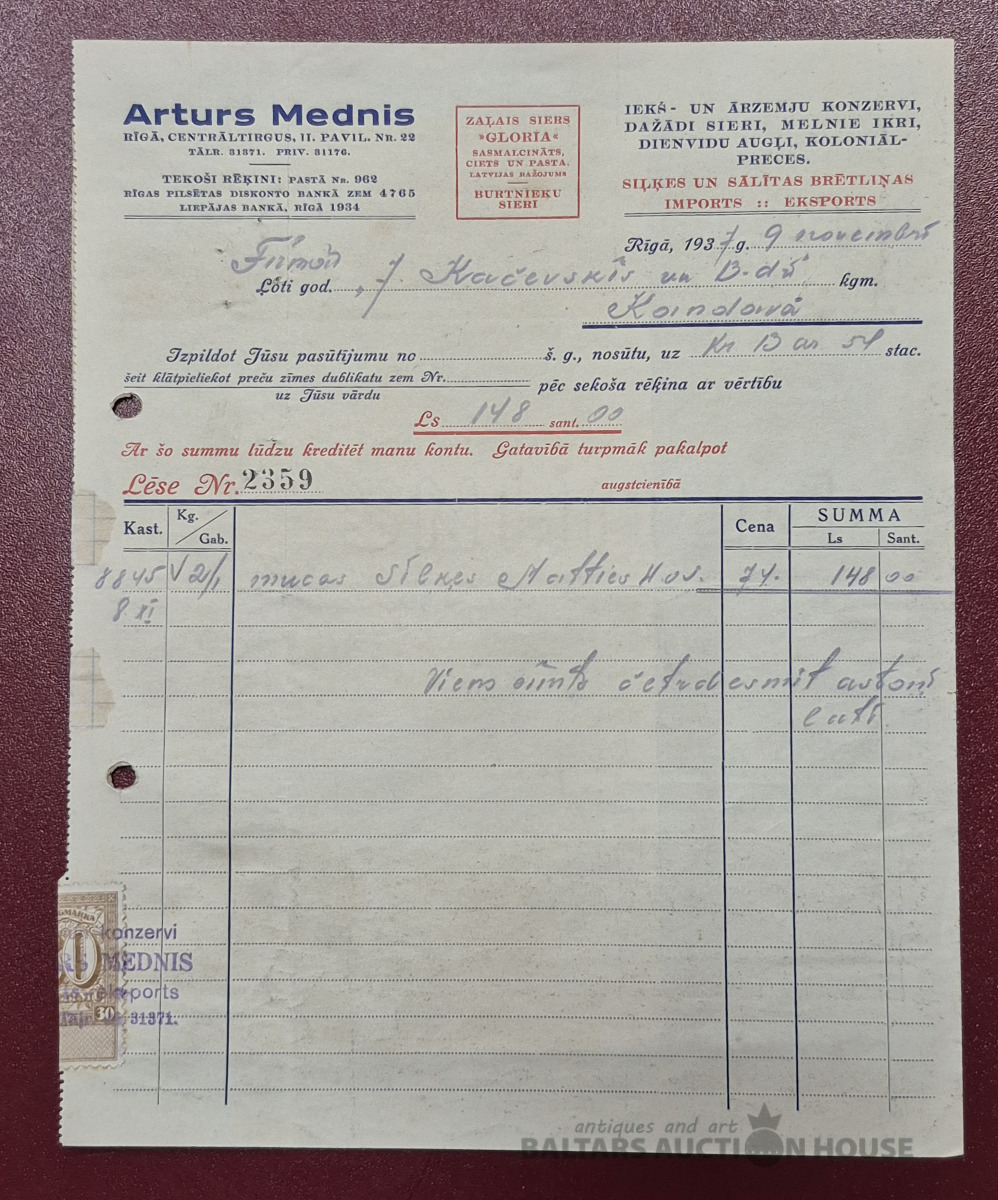 Arturs Mednis
RĪGĀ, CENTRĀLTIRGUS, II. PAVIL. NR. 22
TĀLR. 31371. PRIV. 31176.
TEKOŠI RĒĶINI: PASTĀ NR. 962
RĪGAS PILSĒTAS DISKONTO BANKĀ ZEM 4765
LIEPĀJAS BANKĀ, RĪGĀ 1934
ZAĻAIS SIERS
»GLORIA«
SASMALCINĀTS,
CIETS UN PASTA.
LATVIJAS RAŽOJUMS
BURTNIEKU
SIERI
IEKŠ- UN ĀRZEMJU KONZERVI,
DAŽĀDI SIERI, MELNIE IKRI,
DIENVIDU AUGĻI, KOLONIĀL-
PRECES.
SIĻĶES UN SĀLĪTAS BRĒTLIŅAS
IMPORTS :: EKSPORTS
Rīgā, 1937 g. 9 novembrī
Firmai
Ļoti god. „J. Kačevskis un B-dri" kgm.
Kandavā
Izpildot Jūsu pasūtījumu no š. g., nosūtu, uz Kr B ar 54 stac.
šeit klātpieliekot preču zīmes dublikatu zem Nr.
uz Jūsu vārdu
pēc sekoša rēķina ar vērtību
Ls 148 sant. 00
Ar šo summu lūdzu kreditēt manu kontu. Gatavībā turpmāk pakalpot
Lēse Nr. 2359
augstcienībā
Kast. Kg. / Gab. Cena SUMMA
Ls Sant.
8845 V 2/1 mucas Siļķes Matties 74.- 148 00
8 XI
Viens simts četrdesmit astoņi
lati.
30
konzervi
MEDNIS
eksports
31371.
antiques and art
BALTARS AUCTION HOUSE